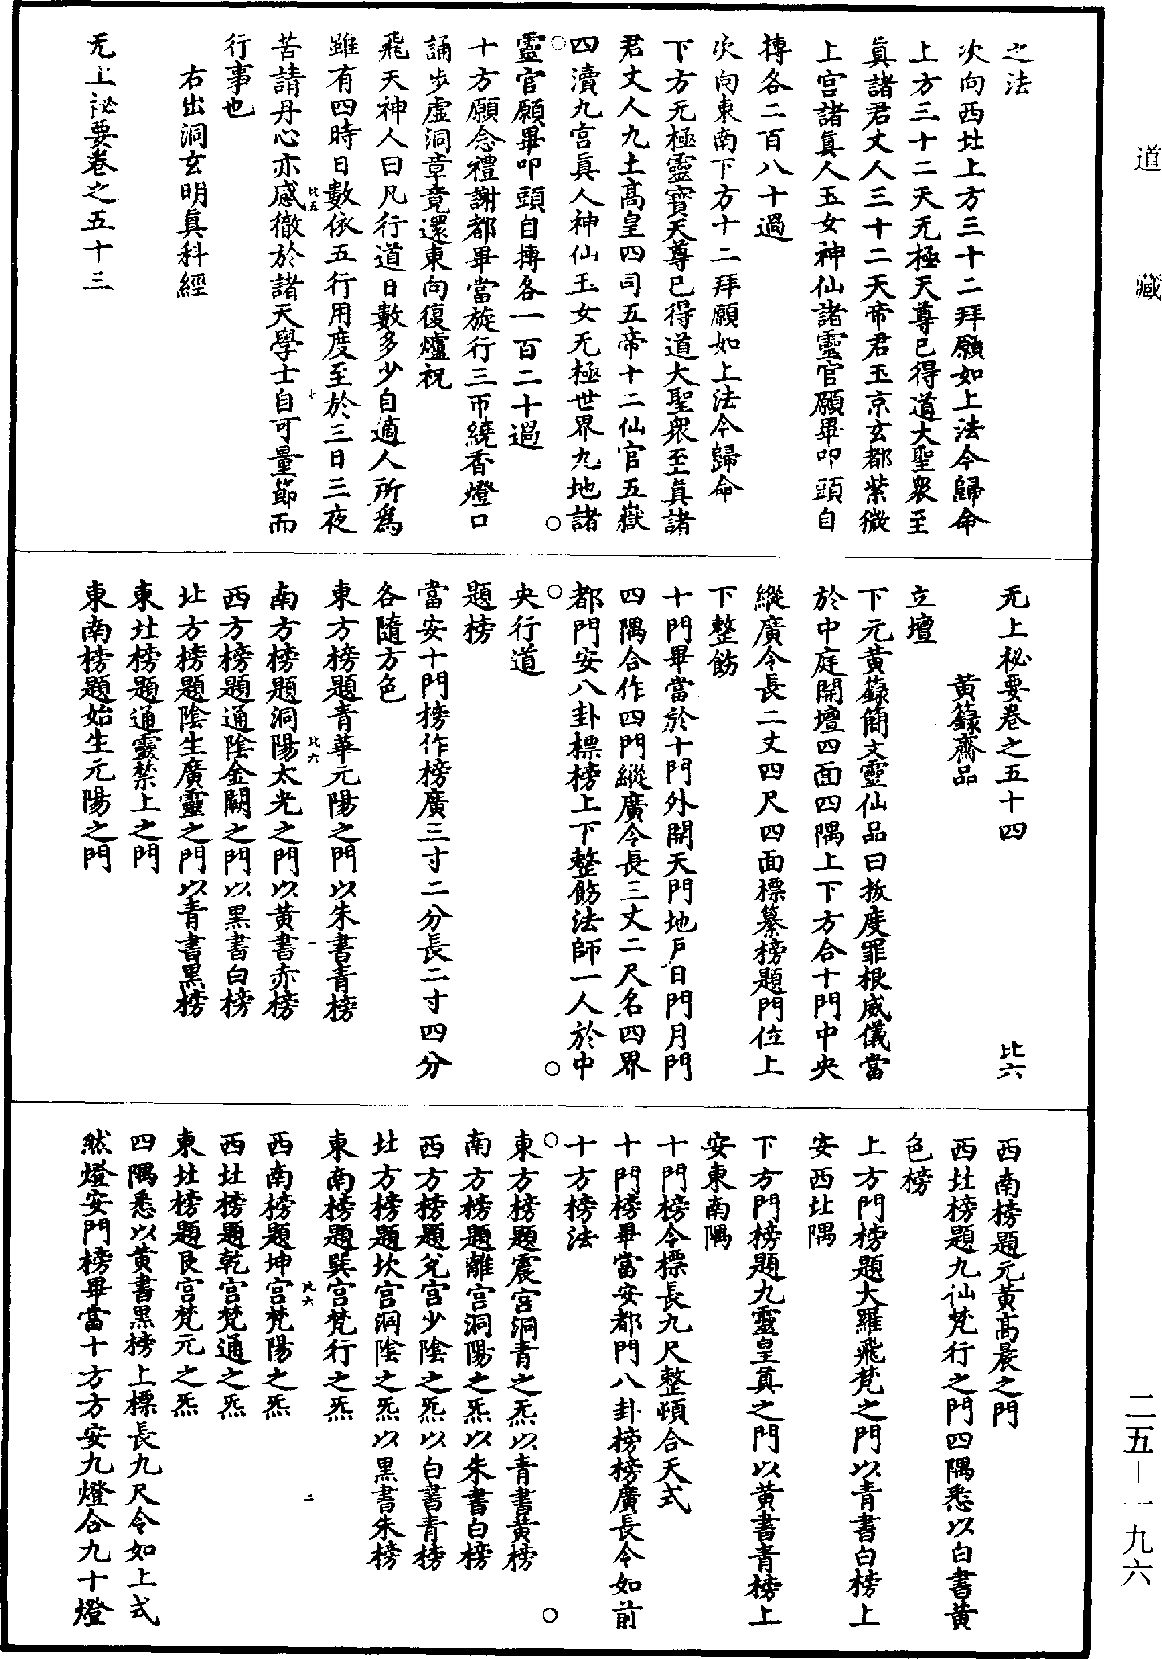 道藏
之法
次向西北上方三十二拜願如上法今歸命
上方三十二天无極天尊已得道大聖衆至
眞諸君丈人三十二天帝君玉京玄都紫微
上宫諸眞人玉女神仙諸靈官願畢叩頭自
搏各二百八十過
次向東南下方十二拜願如上法今歸命
下方无極靈寶天尊已得道大聖衆至眞諸
君丈人九土高皇四司五帝十二仙官五嶽
四瀆九宫眞人神仙玉女无極世界九地諸
靈官願畢叩頭自搏各一百二十過
十方願念禮謝都畢當旋行三帀繞香燈口
誦步虛洞章竟還東向復爐祝
飛天神人曰凡行道日數多少自適人所爲
雖有四時日數依五行用度至於三日三夜
苦請丹心亦感徹於諸天學士自可量節而
行事也
右出洞玄明眞科經
无上祕要卷之五十三
比五
七
无上秘要卷之五十四
比六
黄籙齋品
立壇
下元黄籙簡文靈仙品曰拔度罪根威儀當
於中庭開壇四面四隅上下方合十門中央
縱廣令長二丈四尺四面標纂榜題門位上
下整飭
十門畢當於十門外開天門地戶日門月門
四隅合作四門縱廣令長三丈二尺名四界
都門安八卦標榜上下整飭法師一人於中
央行道
題榜
當安十門榜作榜廣三寸二分長二寸四分
各隨方色
東方榜題青華元陽之門以朱書青榜
比六
一
南方榜題洞陽太光之門以黄書赤榜
西方榜題通陰金闕之門以黑書白榜
北方榜題陰生廣靈之門以青書黑榜
東北榜題通靈禁上之門
東南榜題始生元陽之門
西南榜題元黄高晨之門
西北榜題九仙梵行之門四隅悉以白書黄
色榜
上方門榜題大羅飛梵之門以青書白榜上
安西北隅
下方門榜題九靈皇眞之門以黄書青榜上
安東南隅
十門榜令標長九尺整頓合天式
十門榜畢當安都門八卦榜榜廣長令如前
十方榜法
東方榜題震宫洞青之炁以青書黄榜
南方榜題離宫洞陽之炁以朱書白榜
西方榜題兌宫少陰之炁以白書青榜
北方榜題坎宫洞陰之炁以黑書朱榜
東南榜題巽宫梵行之炁
比六
二
西南榜題坤宫梵陽之炁
西北榜題乾宫梵通之炁
東北榜題艮宫梵元之炁
四隅悉以黄書黑榜上標長九尺令如上式
然燈安門榜畢當十方方安九燈合九十燈
二五—一九六